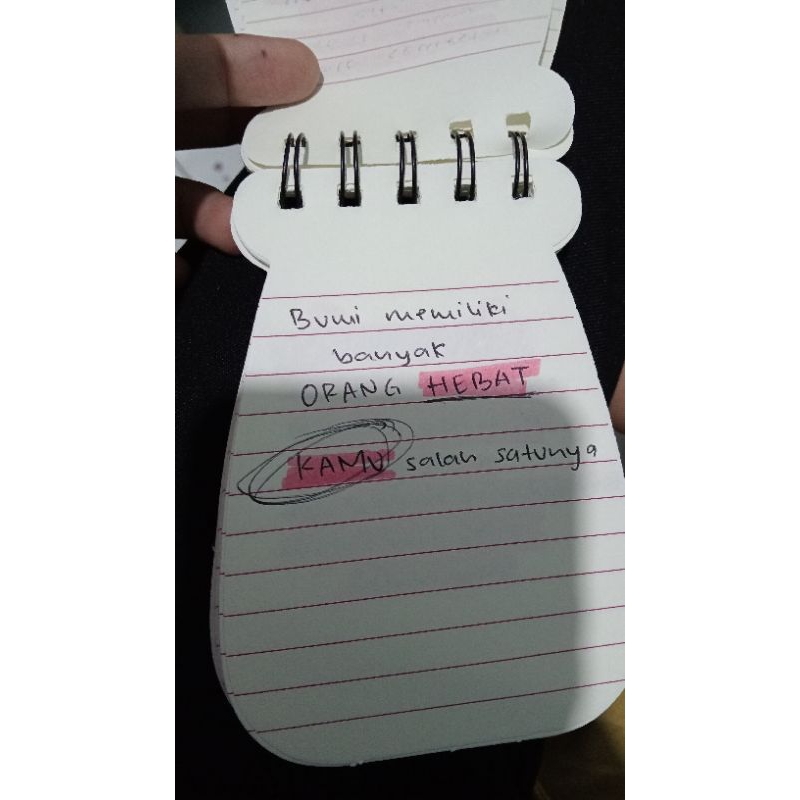 Bumi memiliki
banyak
ORANG HEBAT
KAMU salah satunya